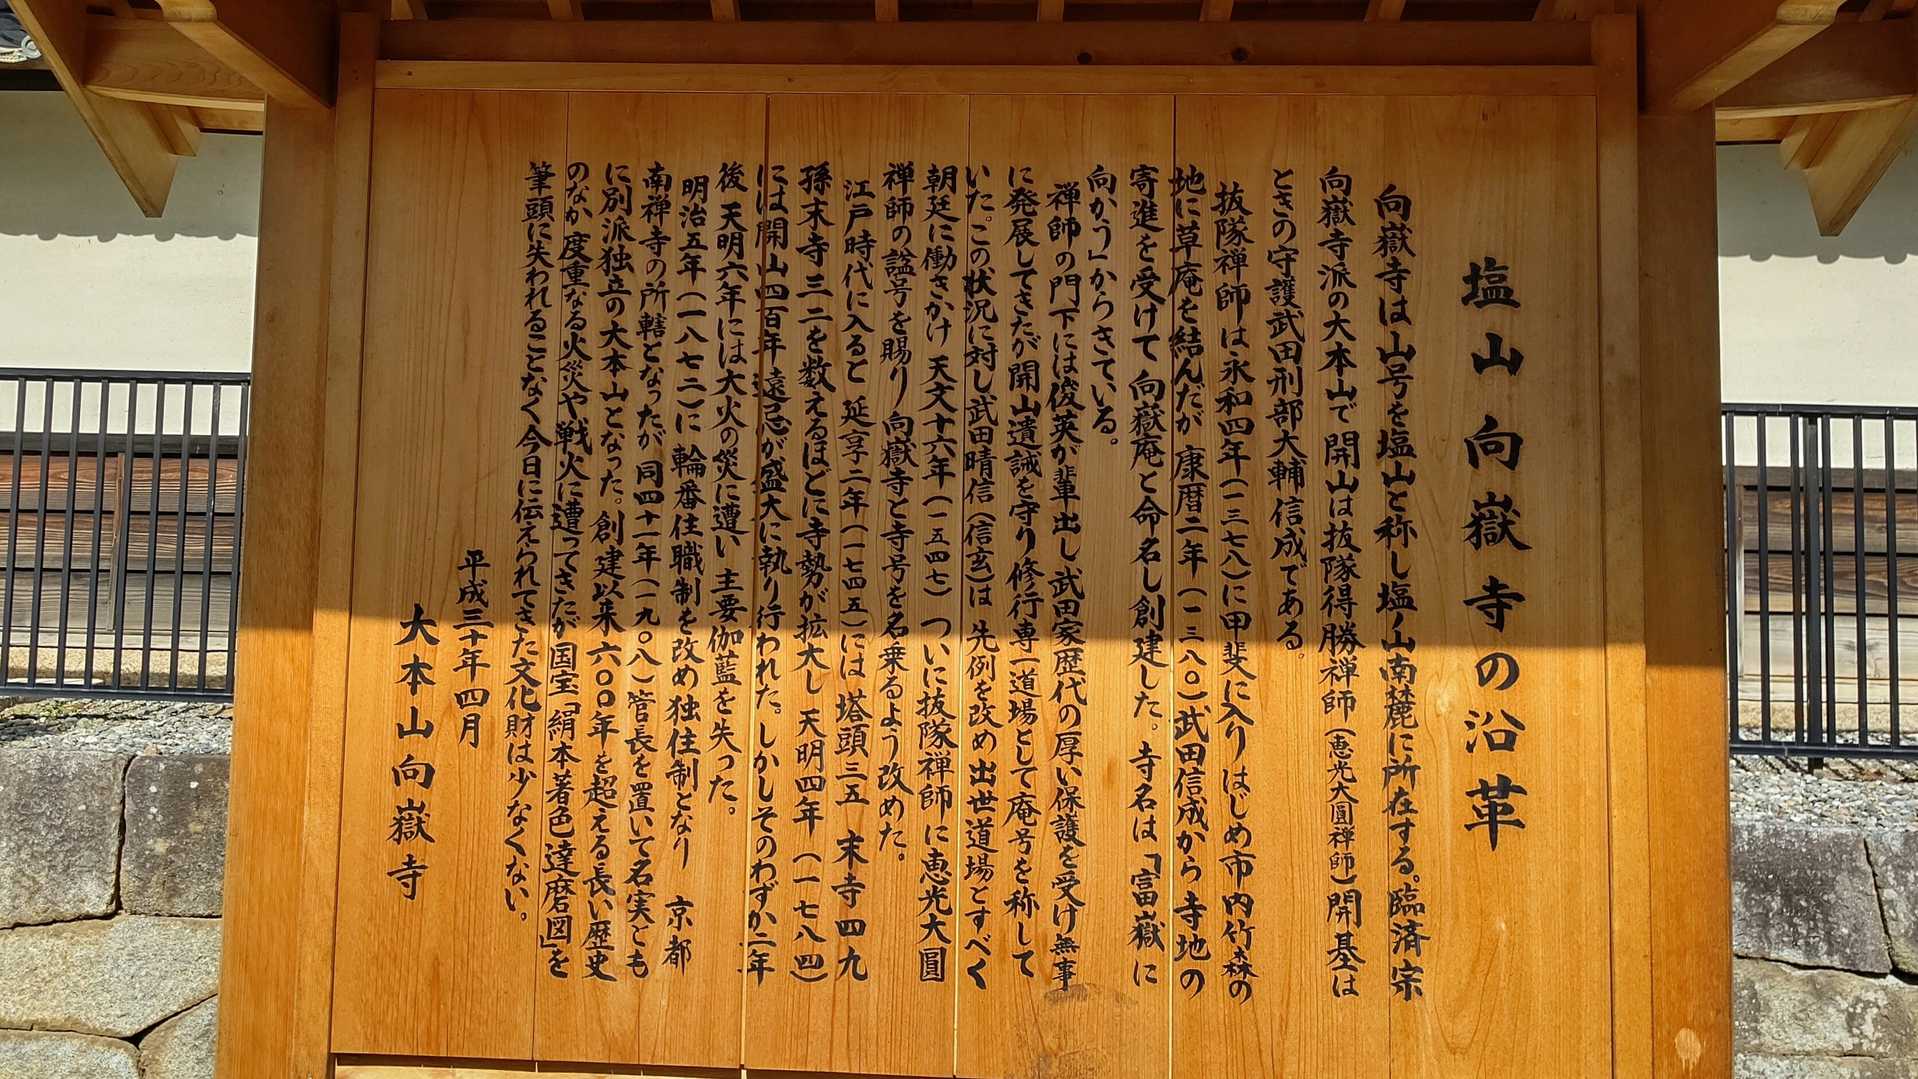 塩山向嶽寺の沿革
向嶽寺は山号を塩山と称し塩ノ山南麓に所在する。臨済宗
向嶽寺派の大本山で開山は抜隊得勝禅師(恵光大圓禅師)開基は
ときの守護武田刑部大輔信成である。
抜隊禅師は永和四年(一三七八)に甲斐に入りはじめ市内竹森の
地に草庵を結んだが 康暦二年(一三八〇)武田信成から寺地の
寄進を受けて向嶽庵と命名し創建した。寺名は「富嶽に
向かう」からきている。
禅師の門下には俊英が輩出し武田家歴代の厚い保護を受け無事
に発展してきたが開山遺誡を守り修行専一道場として庵号を称して
いた。この状況に対し武田晴信(信玄)は 先例を改め出世道場とすべく
朝廷に働きかけ 天文十六年(一五四七) ついに抜隊禅師に恵光大圓
禅師の諡号を賜り向嶽寺と寺号を名乗るよう改めた。
江戸時代に入ると 延享二年(一七四五)には 塔頭三五 末寺四九
孫末寺三二を数えるほどに寺勢が拡大し 天明四年(一七八四)
には開山四百年遠忌が盛大に執り行われた。しかしそのわずか二年
後 天明六年には大火の災に遭い 主要伽藍を失った。
明治五年(一八七二)に 輪番住職制を改め独住制となり 京都
南禅寺の所轄となったが同四十一年(一九〇八)管長を置いて名実とも
に別派独立の大本山となった。創建以来六〇〇年を超える長い歴史
のなか度重なる火災や戦火に遭ってきたが国宝「絹本著色達磨図」を
筆頭に失われることなく今日に伝えられてきた文化財は少なくない。
平成三十年四月
大本山向嶽寺